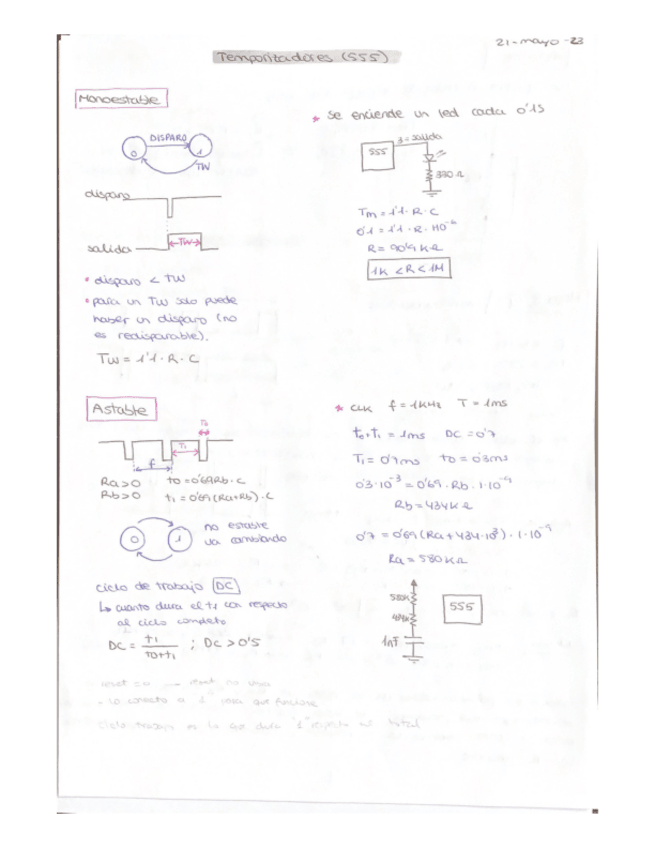 21-mayo-23
Temporizadores (555)
Monoestable
DISPARO
0
1
TW
disparo
salida
TW
• disparo < TW
• para un TW solo puede
haber un disparo (no
es redisparable).
TW = 1'1 · R · C
* se enciende un led cada 0'1s
3=salida
555
330 Ω
Tm = 1'1 · R · C
0'1 = 1'1 · R · 1·10⁻⁶
R = 90'9 KΩ
1K < R < 1M
Astable
T0
T1
f
Ra>0
t0 = 0'69Rb · C
Rb>0
t1 = 0'69 (Ra+Rb) · C
0
1
no estable
va cambiando
ciclo de trabajo DC
↳ cuanto dura el t1 con respecto
al ciclo completo
DC = t1 / t0+t1 ; DC > 0'5
* CLK f = 1KHz T = 1ms
t0+T1 = 1ms DC = 0'7
T1 = 0'7ms t0 = 0'3ms
0'3·10⁻³ = 0'69 · Rb · 1·10⁻⁹
Rb = 434KΩ
0'7 = 0'69 (Ra + 434·10³) · 1·10⁻⁹
Ra = 580KΩ
580K
434K
1nF
555
- lo conecto a 1 para que funcione
ciclo trabajo es lo que dura "1" respecto al total